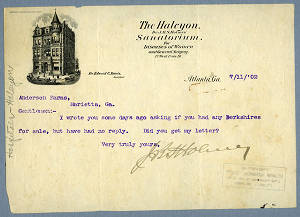 The Halcyon,
Sanatorium.
For
Diseases of Women
and General Surgery.
Atlanta, Ga. 7/11/'02
Anderson Farms,
Marietta, Ga.
Gentlemen:-
I wrote you some days ago asking if you had any Berkshires
for sale, but have had no reply. Did you get my letter?
Very truly yours,